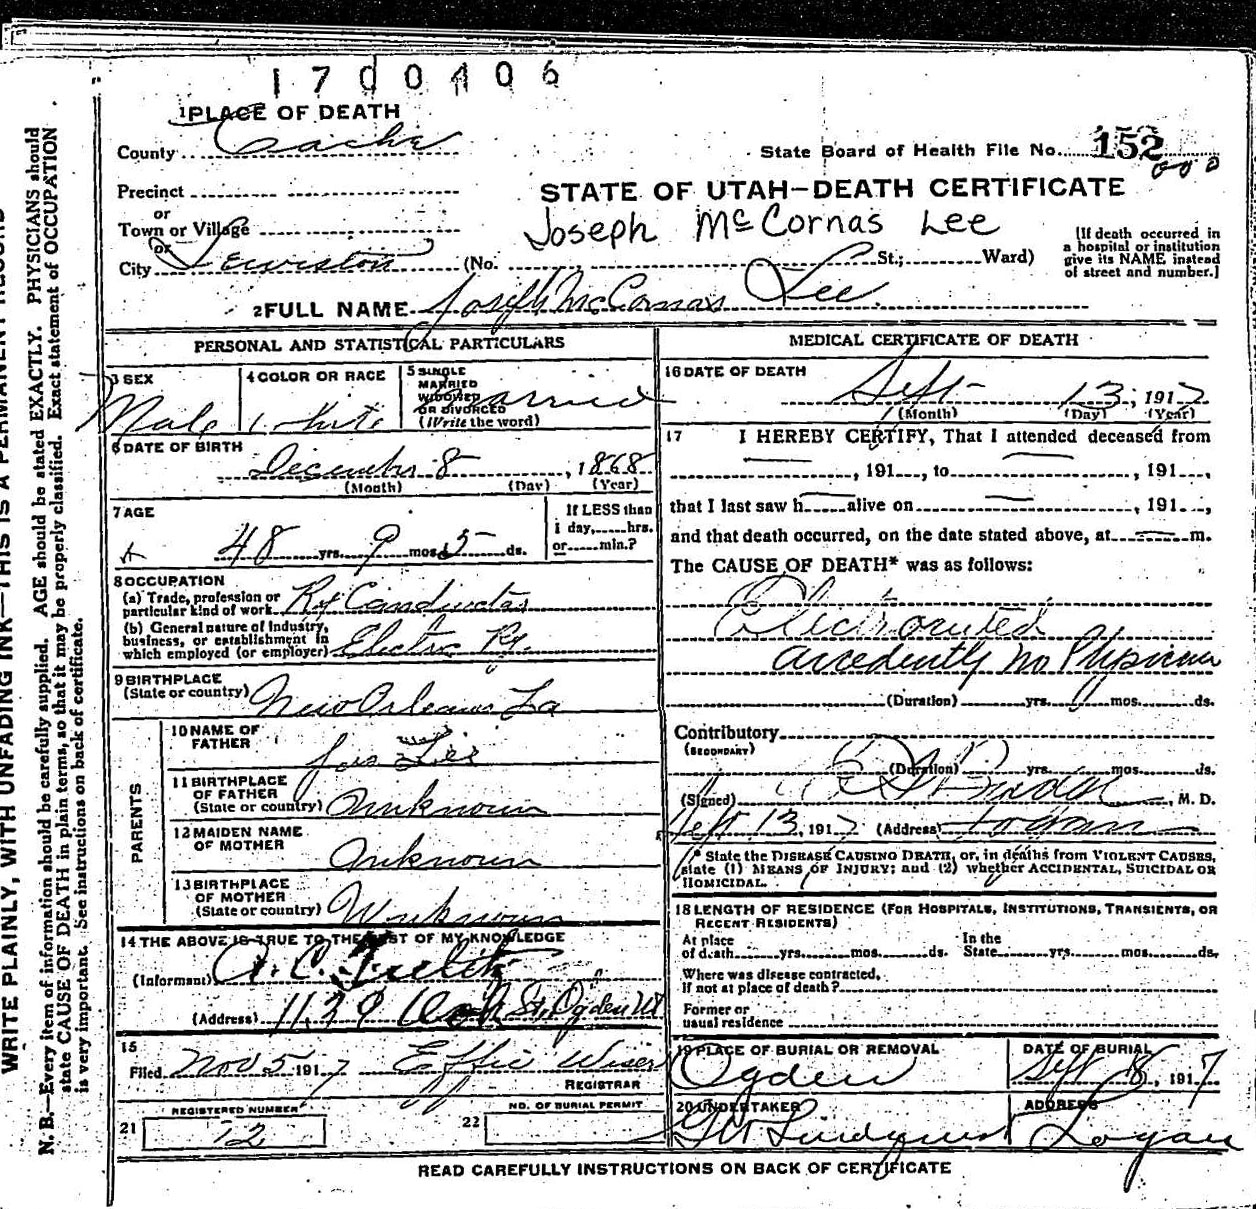 1700406
1 PLACE OF DEATH
County Cache
State Board of Health File No. 152
000
Precinct
or
STATE OF UTAH-DEATH CERTIFICATE
Town or Village
or
Joseph McCornas Lee
City Lewiston (No. St.; Ward)
[If death occurred in
a hospital or institution
give its NAME instead
of street and number.]
2 FULL NAME Joseph McCornas Lee
PERSONAL AND STATISTICAL PARTICULARS
3 SEX
Male
4 COLOR OR RACE
White
5 SINGLE
MARRIED
WIDOWED
OR DIVORCED
(Write the word)
Married
6 DATE OF BIRTH
December 8, 1868
(Month) (Day) (Year)
7 AGE
48 yrs. 9 mos. 5 ds.
If LESS than
1 day, hrs.
or min.?
8 OCCUPATION
(a) Trade, profession or
particular kind of work Ry Conductor
(b) General nature of Industry,
business, or establishment in
which employed (or employer) Electric Ry.
9 BIRTHPLACE
(State or country) New Orleans La
PARENTS
10 NAME OF
FATHER Jos Lee
11 BIRTHPLACE
OF FATHER
(State or country) Unknown
12 MAIDEN NAME
OF MOTHER Unknown
13 BIRTHPLACE
OF MOTHER
(State or country) Unknown
14 THE ABOVE IS TRUE TO THE BEST OF MY KNOWLEDGE
(Informant) A. C.
(Address) 1139 St, Ogden Ut
15
Filed Nov 5 1917 Effie Wiser
REGISTRAR
REGISTERED NUMBER
21 72
NO. OF BURIAL PERMIT
22
MEDICAL CERTIFICATE OF DEATH
16 DATE OF DEATH
Sept 13, 1917
(Month) (Day) (Year)
17 I HEREBY CERTIFY, That I attended deceased from
, 191 , to , 191 ,
that I last saw h alive on , 191 ,
and that death occurred, on the date stated above, at m.
The CAUSE OF DEATH* was as follows:
Electrocuted
accedently no Physician
(Duration) yrs. mos. ds.
Contributory
(SECONDARY)
(Duration) yrs. mos. ds.
(Signed) , M. D.
Sept 13, 1917 (Address) Logan
* State the DISEASE CAUSING DEATH, or, in deaths from VIOLENT CAUSES,
state (1) MEANS OF INJURY; and (2) whether ACCIDENTAL, SUICIDAL OR
HOMICIDAL.
18 LENGTH OF RESIDENCE (FOR HOSPITALS, INSTITUTIONS, TRANSIENTS, OR
RECENT RESIDENTS)
At place
of death yrs. mos. ds.
In the
State yrs. mos. ds.
Where was disease contracted,
if not at place of death?
Former or
usual residence
19 PLACE OF BURIAL OR REMOVAL
Ogden
DATE OF BURIAL
Sept 18, 1917
20 UNDERTAKER
GW Lindquist
ADDRESS
Logan
READ CAREFULLY INSTRUCTIONS ON BACK OF CERTIFICATE
WRITE PLAINLY, WITH UNFADING INK—THIS IS A PERMANENT RECORD
N. B.—Every item of information should be carefully supplied. AGE should be stated EXACTLY. PHYSICIANS should
state CAUSE OF DEATH in plain terms, so that it may be properly classified. Exact statement of OCCUPATION
is very important. See instructions on back of certificate.